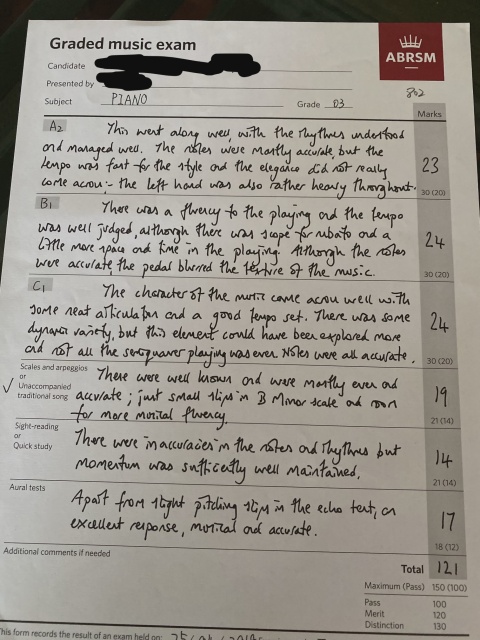 Graded music exam
ABRSM
Candidate
Presented by
Subject PIANO Grade 03
802
Marks
A2 This went along well, with the rhythms understood
and managed well. The notes were mostly accurate, but the
tempo was fast for the style and the elegance did not really
come across - the left hand was also rather heavy throughout.
23
30 (20)
B1 There was a fluency to the playing and the tempo
was well judged, although there was scope for rubato and a
little more space and time in the playing. Although the notes
were accurate the pedal blurred the texture of the music.
24
30 (20)
C1 The character of the music came across well with
some neat articulation and a good tempo set. There was some
dynamic variety, but this element could have been explored more
and not all the semiquaver playing was even. Notes were all accurate.
24
30 (20)
Scales and arpeggios
or
✓ Unaccompanied
traditional song
There were well known and were mostly even and
accurate; just small slips in B Minor scale and room
for more musical fluency.
19
21 (14)
Sight-reading
or
Quick study
There were inaccuracies in the notes and rhythms but
momentum was sufficiently well maintained.
14
21 (14)
Aural tests
Apart from slight pitching slips in the echo test, an
excellent response, musical and accurate.
17
18 (12)
Additional comments if needed
Total 121
Maximum (Pass) 150 (100)
Pass 100
Merit 120
Distinction 130
This form records the result of an exam held on: